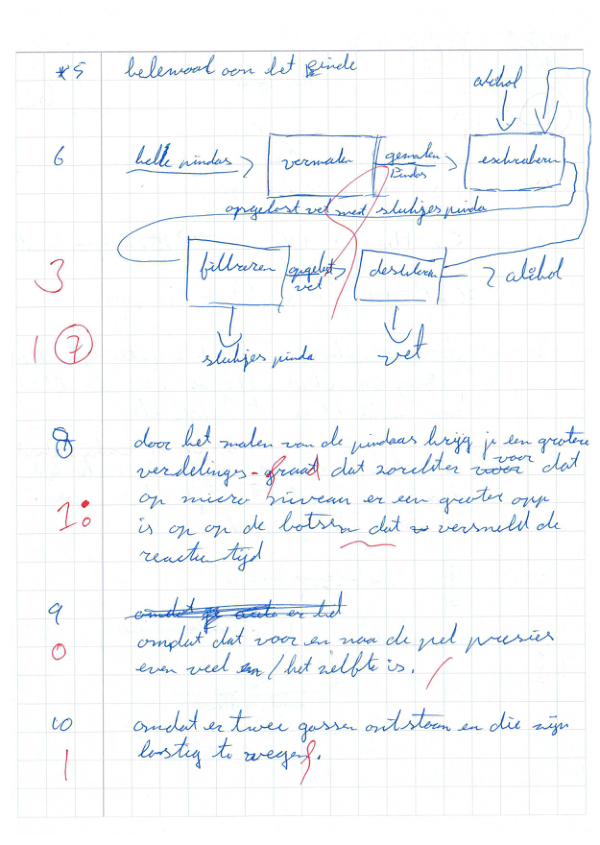 *5 helemaal aan het einde
alcohol
6 hele pindas vermalen gemalen extraheren
Pindas
opgelost vet met stukjes pinda
3
filtreren opgelost destileren alcohol
vet
1 7
stukjes pinda vet
8 door het malen van de pindaas krijg je een grotere
verdelinges-graad dat zorchter voor dat
op micro niveau er een groter opp
1 is op op de botsen dat versneld de
reactie tijd
9 omdat er het
omdat dat voor en naa de pijl presies
0 even veel / het zelfte is.
10 omdat er twee gassen ontstaan en die zijn
1 lastig te wegen.